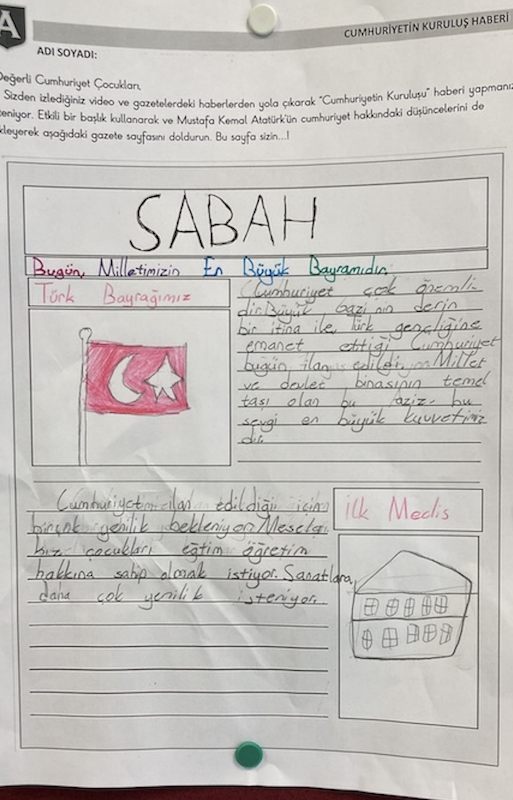 A
CUMHURİYETİN KURULUŞ HABERİ
ADI SOYADI:
Değerli Cumhuriyet Çocukları,
Sizden izlediğiniz video ve gazetelerdeki haberlerden yola çıkarak "Cumhuriyetin Kuruluşu" haberi yapmanız
teniyor. Etkili bir başlık kullanarak ve Mustafa Kemal Atatürk'ün cumhuriyet hakkındaki düşüncelerini de
kleyerek aşağıdaki gazete sayfasını doldurun. Bu sayfa sizin...!
SABAH
Bugün, Milletimizin En Büyük Bayramıdır.
Türk Bayrağımız
Cumhuriyet çok önemli
dir. Büyük gazi'nin derin
bir itina ile, Türk gençliğine
emanet ettiği Cumhuriyet
bugün ilan edildi. Millet
ve devlet binasının temel
taşı olan bu aziz bu
sevgi en büyük kuvvetimiz
dir.
Cumhuriyet ilan edildiği için
birçok yenilik bekleniyor. Mesela
biz çocukları eğtim öğretim
hakkına sahip olmak istiyor. Sanatlara,
daha çok yenilik isteniyor.
ilk Meclis